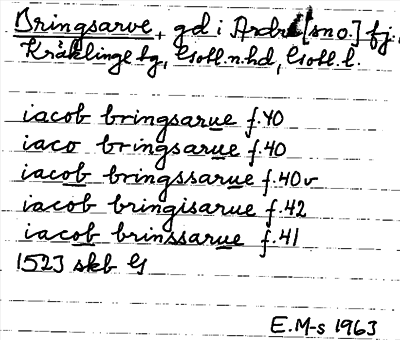 Bringsarve, gd i Ardre [sn o.] fj.,
Kräklinge tg, Gotl. n. hd, Gotl. l.
iacob bringsarue f. 40
iaco bringsarue f. 40
iacob bringssarue f. 40v
iacob bringisarue f. 42
iacob brinssarue f. 41
1523 skb G
E.M-s 1963